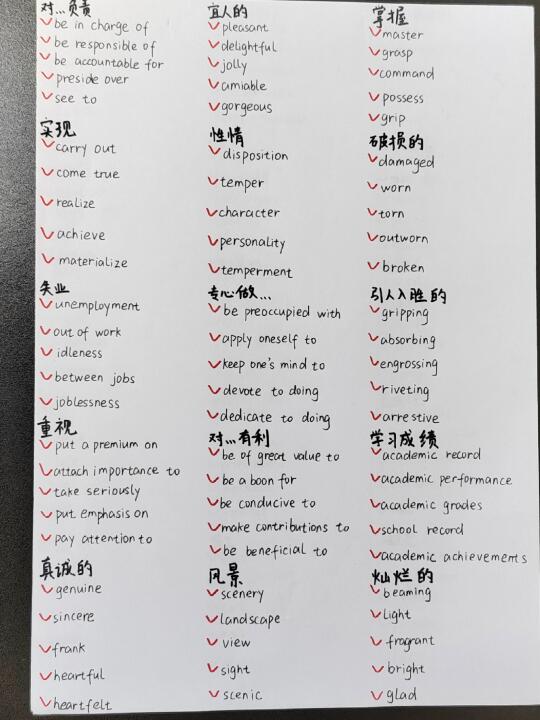 对...负责
be in charge of
be responsible of
be accountable for
preside over
see to
实现
carry out
come true
realize
achieve
materialize
失业
unemployment
out of work
idleness
between jobs
joblessness
重视
put a premium on
attach importance to
take seriously
put emphasis on
pay attention to
真诚的
genuine
sincere
frank
heartful
heartfelt
宜人的
pleasant
delightful
jolly
amiable
gorgeous
性情
disposition
temper
character
personality
temperment
专心做...
be preoccupied with
apply oneself to
keep one's mind to
devote to doing
dedicate to doing
对...有利
be of great value to
be a boon for
be conducive to
make contributions to
be beneficial to
风景
scenery
landscape
view
sight
scenic
掌握
master
grasp
command
possess
grip
破损的
damaged
worn
torn
outworn
broken
引人入胜的
gripping
absorbing
engrossing
riveting
arrestive
学习成绩
academic record
academic performance
academic grades
school record
academic achievements
灿烂的
beaming
light
fragrant
bright
glad